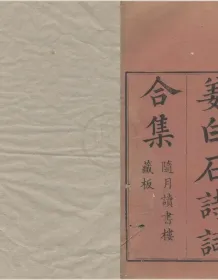 姜白石詩詞
合集
隨月讀書樓
藏板